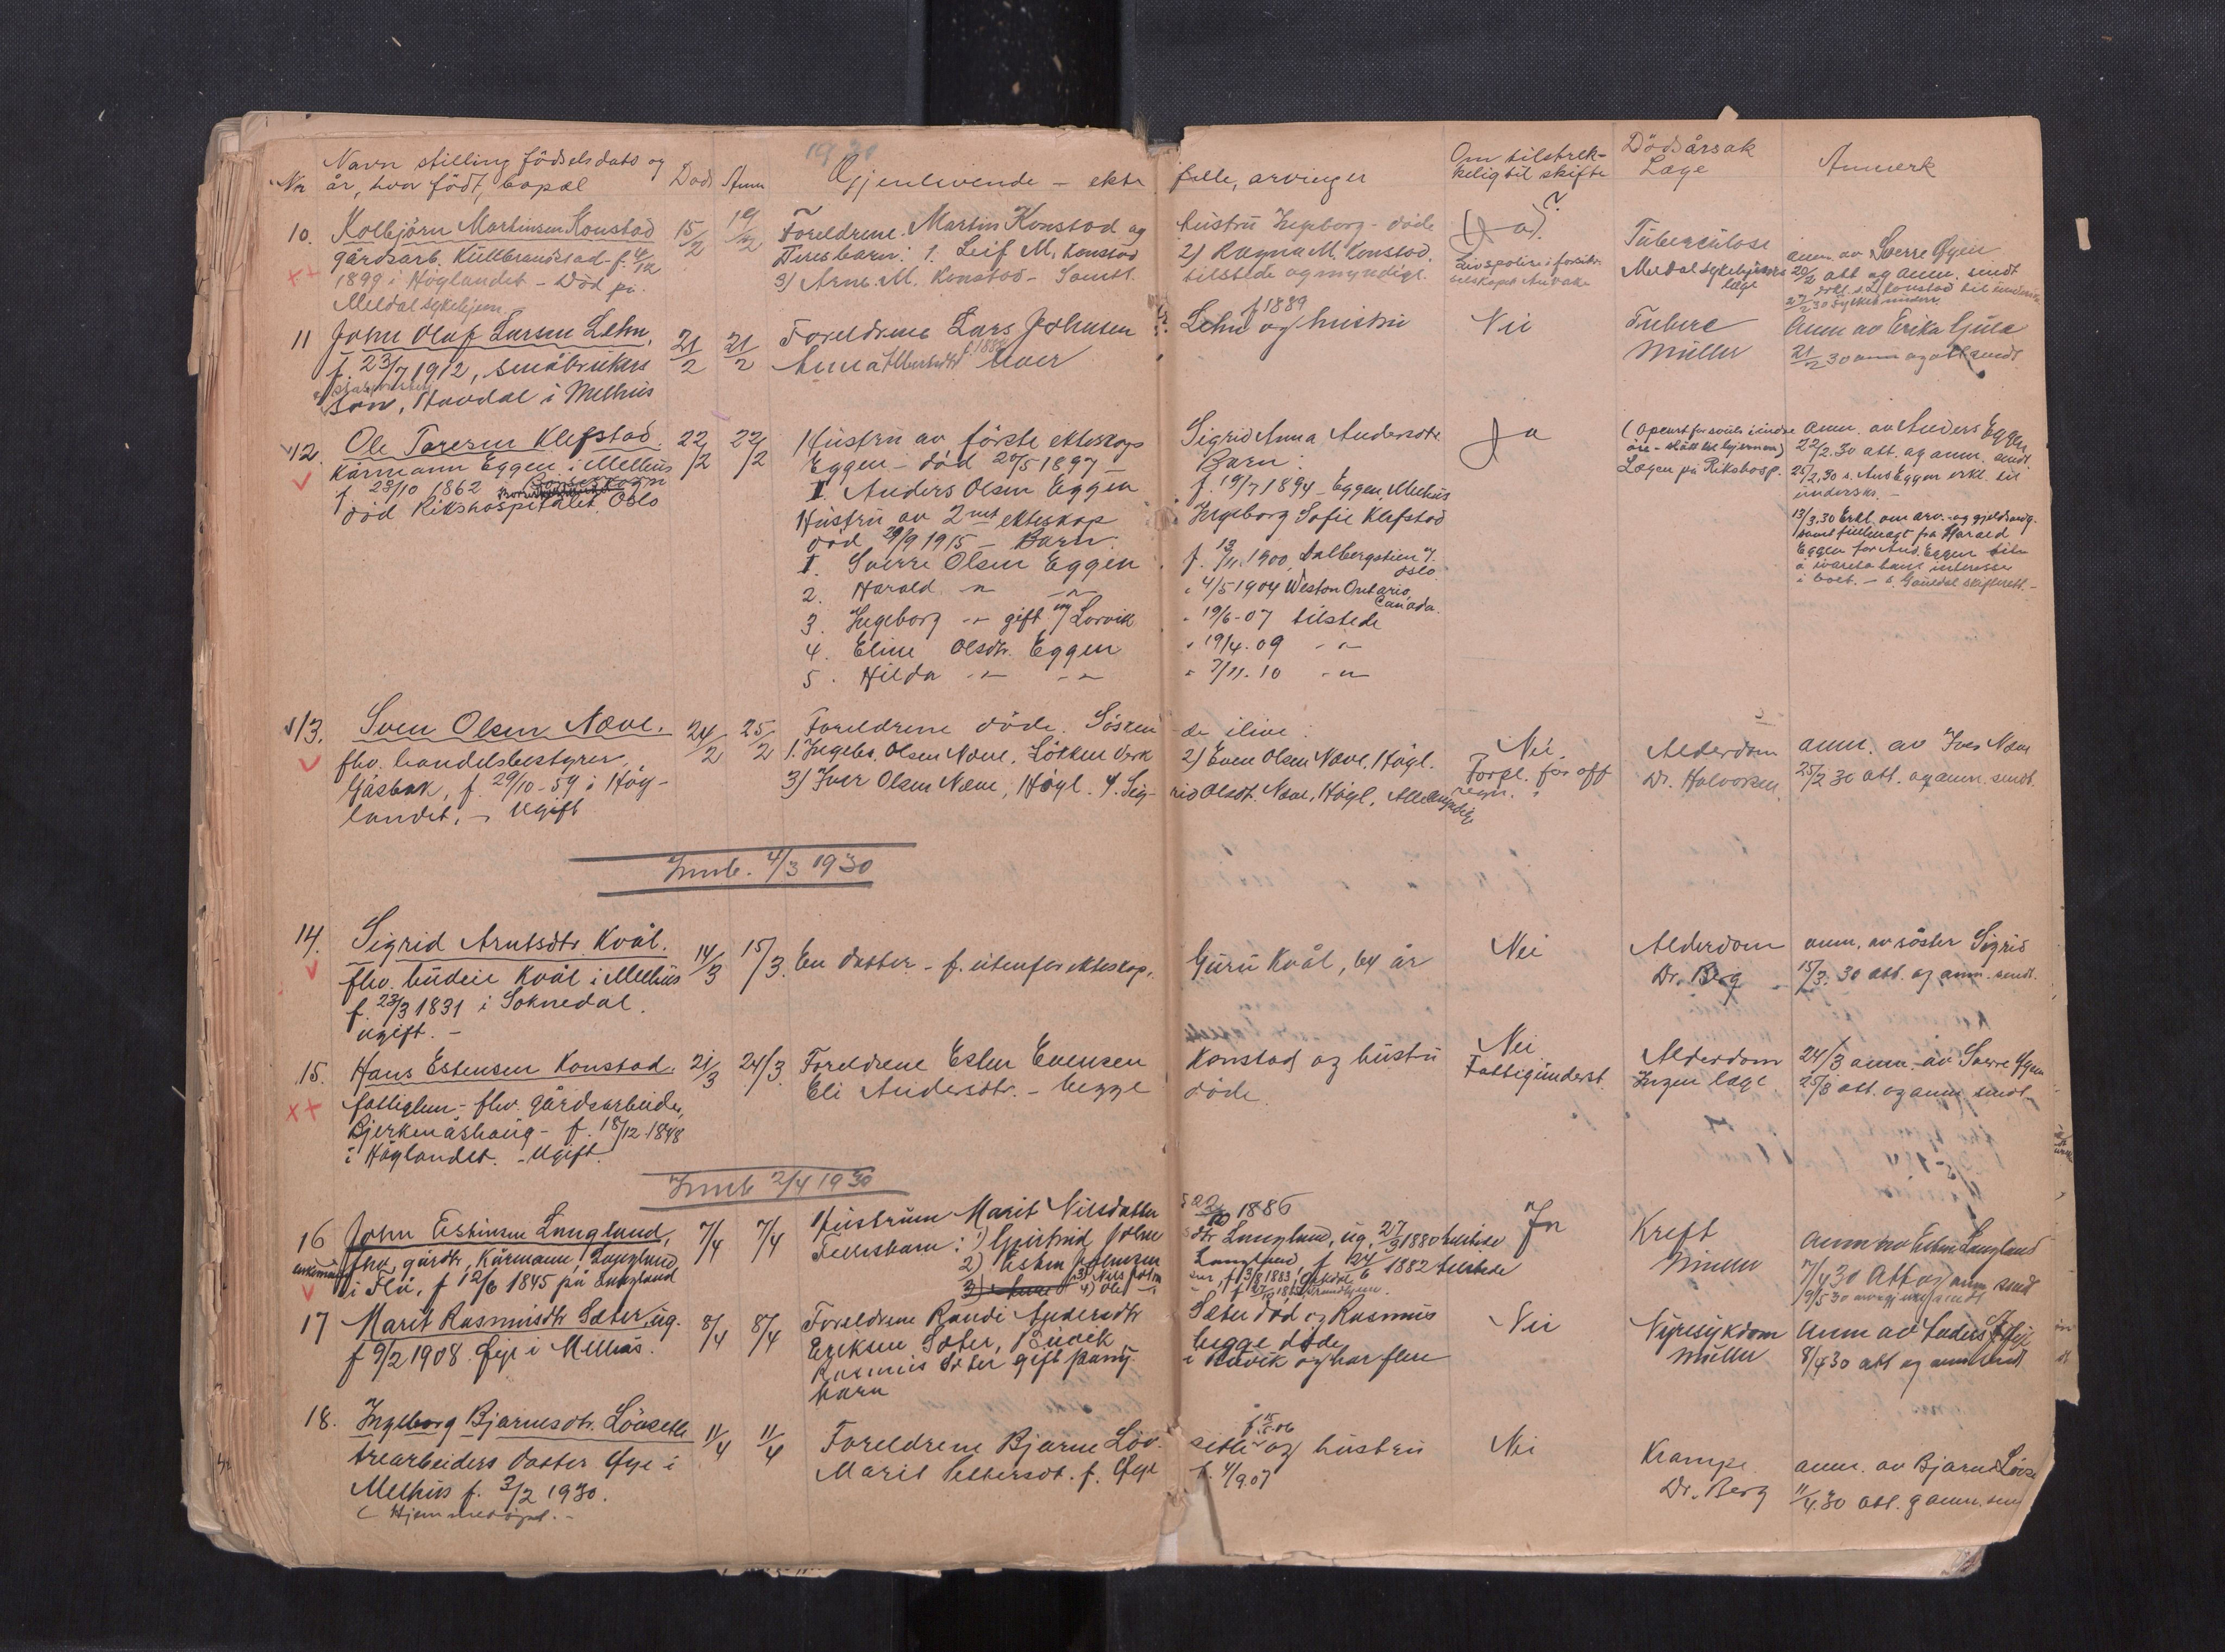 1930
Nr
Navn stilling födselsdato og
år, hvor födt, bopæl
Död
Anm
Gjenlevende – ekte
felle, arvinger
Om tilstrek-
kelig til skifte
Dödsårsak
Læge
Anmerk
10. Kolbjörn Martinsen Konstad
gårdsarb. Kullbrandstad f. 4/12
1899 i Höglandet – Död på
Meldal sykehjem
15/2
19/2
Foreldrene: Martin Konstad og
hustru Ingeborg – döde
Deres barn: 1. Leif M. Konstad
2) Ragna M. Konstad.
3) Arne M. Konstad – Samtl.
tilstede og myndige.
(Ja)?
Livspolise i forsikr.
selskapet Andvake
Tuberculose
Meldal sykehjems
læge
anm. av Sverre Øyen
20/2 att og anm. sendt
11 John Olaf Larsen Lehn,
f. 23/7 1912, småbrukers
sön, Havdal i Melhus
21/2
21/2
Foreldrene Lars Johnsen
Lehn f 1889 og hustru
Anna Albertsdtr
Nei
Tuberc
Müller
Anm av Erika
21/2 30 anm og att sendt
12. Ole Toresen Klefstad.
Kårmann Eggen i Melhus
f. 23/10 1862 i
död Rikshospitalet, Oslo
22/2
22/2
Hustru av förste ekteskap
Sigrid Anna Andersdtr.
Eggen – död 20/5 1897 –
Barn:
I. Anders Olsen Eggen
f. 19/7 1894 – Eggen, Melhus
Hustru av 2net ekteskap
Ingeborg Sofie Klefstad
död 29/9 1915 – Barn.
I. Sverre Olsen Eggen
f. 13/11. 1900, Dalbergstien 7. Oslo
2. Harald –"– –"–
" 4/5 1904 Weston Ontario, Canada.
3. Ingeborg –"– gift m/ Lorvik
" 19/6-07 tilstede
4. Eline Olsdtr. Eggen
" 19/4.09 –"–
5. Hilda –"– –"–
" 7/11. 10 –"–
Ja
(Operert for svulst i indre
öre – slått til hjernen)
Lægen på Rikshosp.
anm. av Anders Eggen
22/2.30 att. og anm. sendt.
25/2.30 s. And Eggen erkl. til
undersks. –
13/3.30 Erkl. om arv.- og gjeldsvedg.
samt fullmagt fra Harald
Eggen for And. Eggen til
å ivareta hans interesser
i boet. – s. Gauldal skifterett. –
13. Sven Olsen Næve.
fhv. handelsbestyrer,
Gåsbak, f. 29/10-59 i Hög-
landet. – Ugift
24/2
25/2
Foreldrene döde. Sösken-
de ilive:
1. Ingebr. Olsen Næve, Lökken Verk
2) Even Olsen Næve, Högl.
3) Iver Olsen Næve, Högl. 4. Sig-
rid Olsdt. Næve, Högl, Alle myndige
Nei.
Forpl. for off
regn.
Alderdom
Dr. Halvorsen
anm. av Iver Næve
25/2 30 att. og anm. sendt.
Innb. 4/3 1930
14. Sigrid Arntsdtr. Kvål.
fhv. budeie Kvål i Melhus
f. 23/3 1831 i Soknedal.
ugift. –
14/3
15/3.
En datter – f. utenfor ekteskap.
Guru Kvål, 64 år
Nei
Alderdom
Dr. Berg
anm. av söster Sigrid
15/3. 30 att. og anm. sendt.
15. Hans Estensen Konstad.
fattiglem – fhv. gårdsarbeider,
Bjerkenåshaug – f. 18/12-1848
i Höglandet. – Ugift.
21/3
24/3.
Foreldrene Esten Evensen
Konstad og hustru
Eli Andersdtr. – begge
döde.
Nei
Fattigunderst.
Alderdom
Ingen læge
24/3 anm. av Sverre Øyen
25/3 att. og anm sendt
Innb 2/4 1930
16 John Estensen Langland,
enkemann fhv. gårdbr, Kårmann Langland
i Flå, f 12/6 1845 på Langland
7/4
7/4
Hustruen Marit Nilsdatter
1886
Fellesbarn: 1) Gjertrud Johns
dtr Langland, ug. 27/3 1880 tilstede
2) Esten Johnsen
Langland, f 24/6 1882 tilstede
3) Nils John
sen, f 13/8 1883,
4) Ole
Ja
Kreft
Müller
Anm av Esten Langland
7/4 30 Att og anm sendt
17 Marit Rasmusdtr Sæter, ug.
f 9/2 1908. Øye i Melhus.
8/4
8/4
Foreldrene Randi Andersdtr
Sæter död og Rasmus
Eriksen Sæter, Buvik
begge döde,
Rasmus Sæter gift påny
i Buvik og har flere
barn
Nei
Nyresykdom
Müller
Anm av Anders Øye
8/4 30 att og anm sendt
18. Ingeborg Bjarnesdtr. Lövseth
trearbeiders datter Øye i
Melhus f. 2/2 1930.
(Hjemmedöpt. –
11/4
11/4
Foreldrene Bjarne Löv-
seth og hustru
Marit Pettersdt. f. Øye
f. 4/9.07
Nei
Krampe
Dr. Berg
anm. av Bjarne Lövse
11/4.30 att. og anm. sen